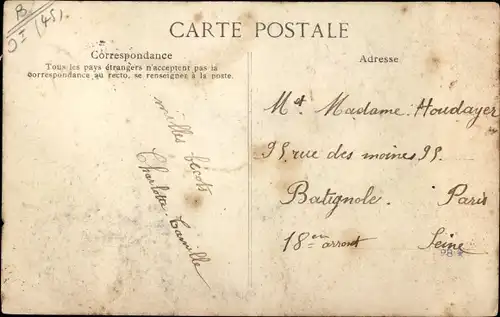 B.
OI (45).
CARTE POSTALE
Correspondance
Tous les pays étrangers n'acceptent pas la
correspondance au recto, se renseigner à la poste.
Adresse
milles bécots
Charlotte Camille
Mt Madame Houdayer
95 rue des moines 95.
Batignole. Paris
18em arront Seine